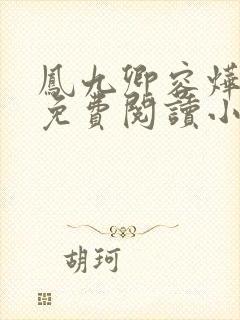 鳳九卿容燁
免費閱讀小
胡珂